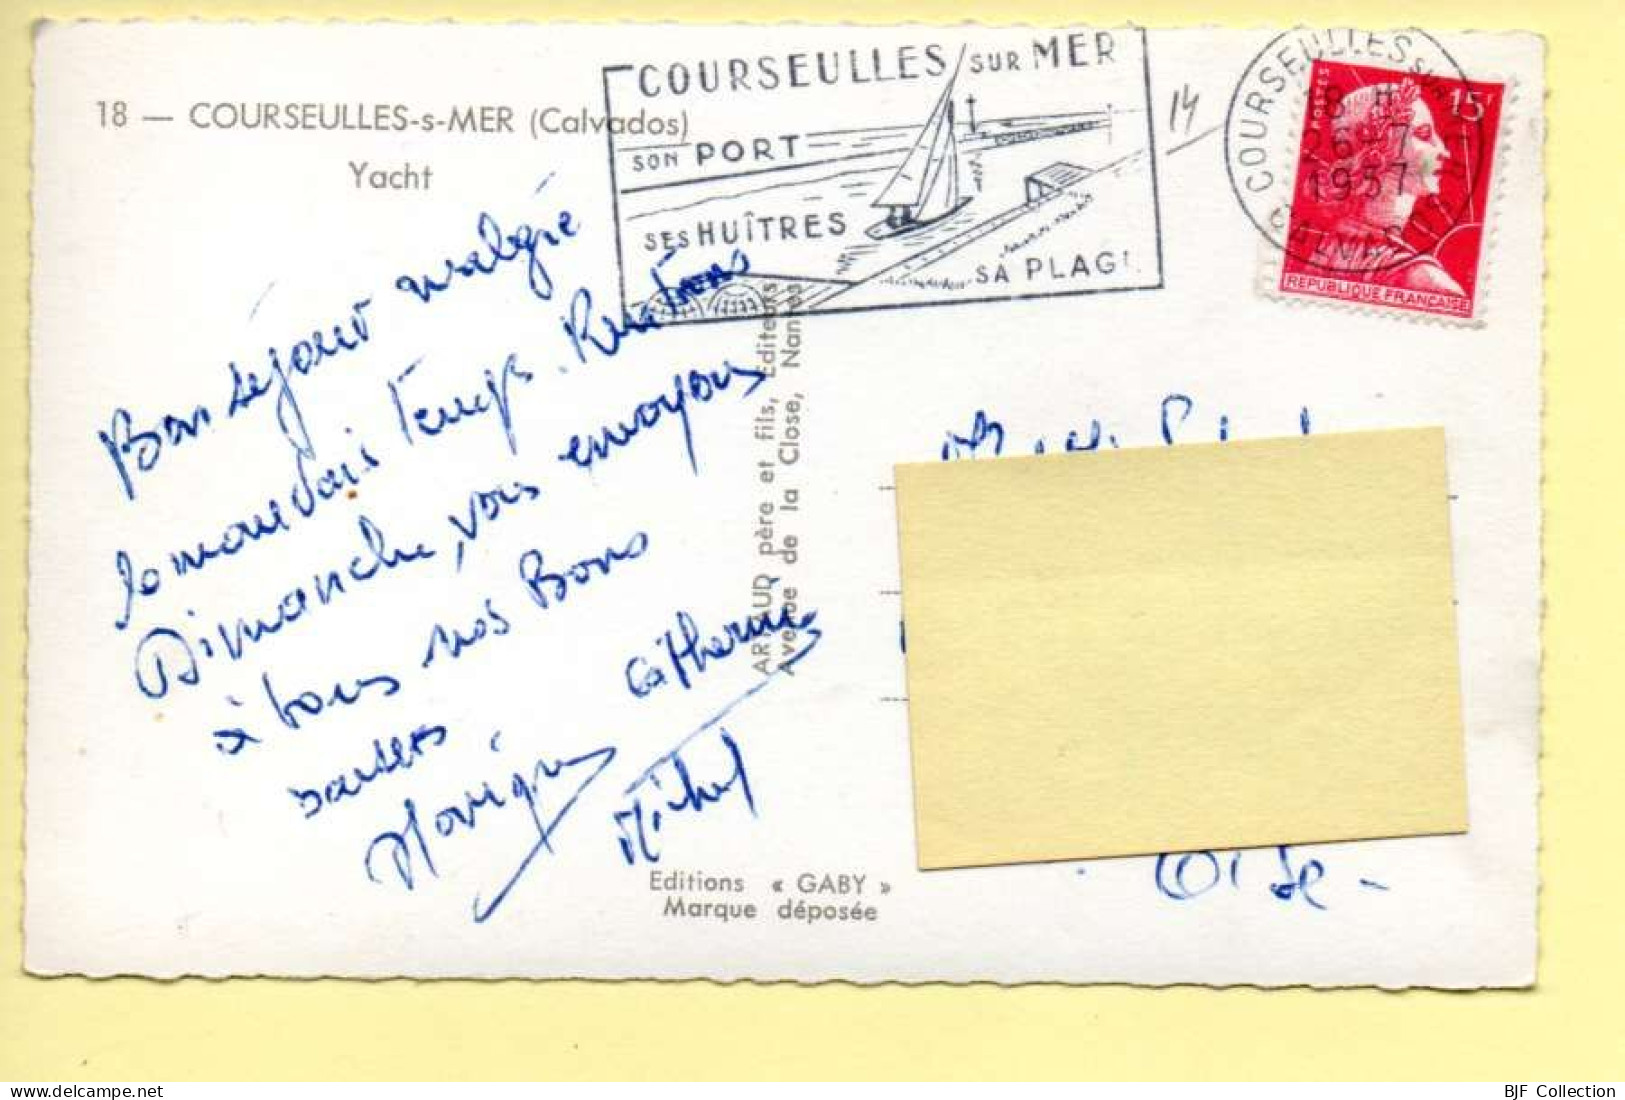 18 — COURSEULLES-s-MER (Calvados)
Yacht
COURSEULLES SUR MER
SON PORT
SES HUÎTRES
SA PLAGE
14
COURSEULLES SUR MER
18 H
26-7
1957
CALVADOS
POSTES
15F
REPUBLIQUE FRANÇAISE
Bon séjour malgré
le mauvais temps. Rentrons
Dimanche, vous envoyons
à tous nos Bons
baisers
Catherine
Monique
Michel
ARTAUD père et fils, Editeurs
Avenue de la Close, Nantes
Editions « GABY »
Marque déposée
Oise -
BJF Collection